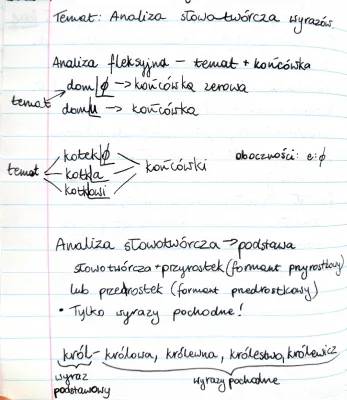 Temat: Analiza słowotwórcza wyrazów.
Analiza fleksyjna - temat + końcówka
dom|ø -> końcówka zerowa
temat
dom|u -> końcówka
kotek|ø
temat kotk|a końcówki oboczności: e:ø
kotk|owi
Analiza słowotwórcza -> podstawa
słowotwórcza + przyrostek (formant przyrostkowy)
lub przedrostek (formant przedrostkowy)
• Tylko wyrazy pochodne!
król - królowa, królewna, królestwo, królewicz
wyraz podstawowy
wyrazy pochodne